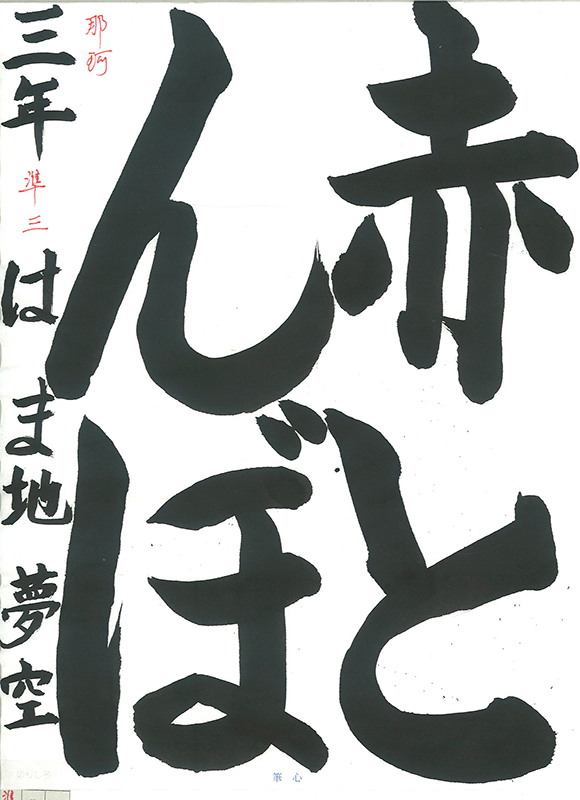 赤と
んぼ
三年 準三 はま地 夢空
那珂
心筆
準